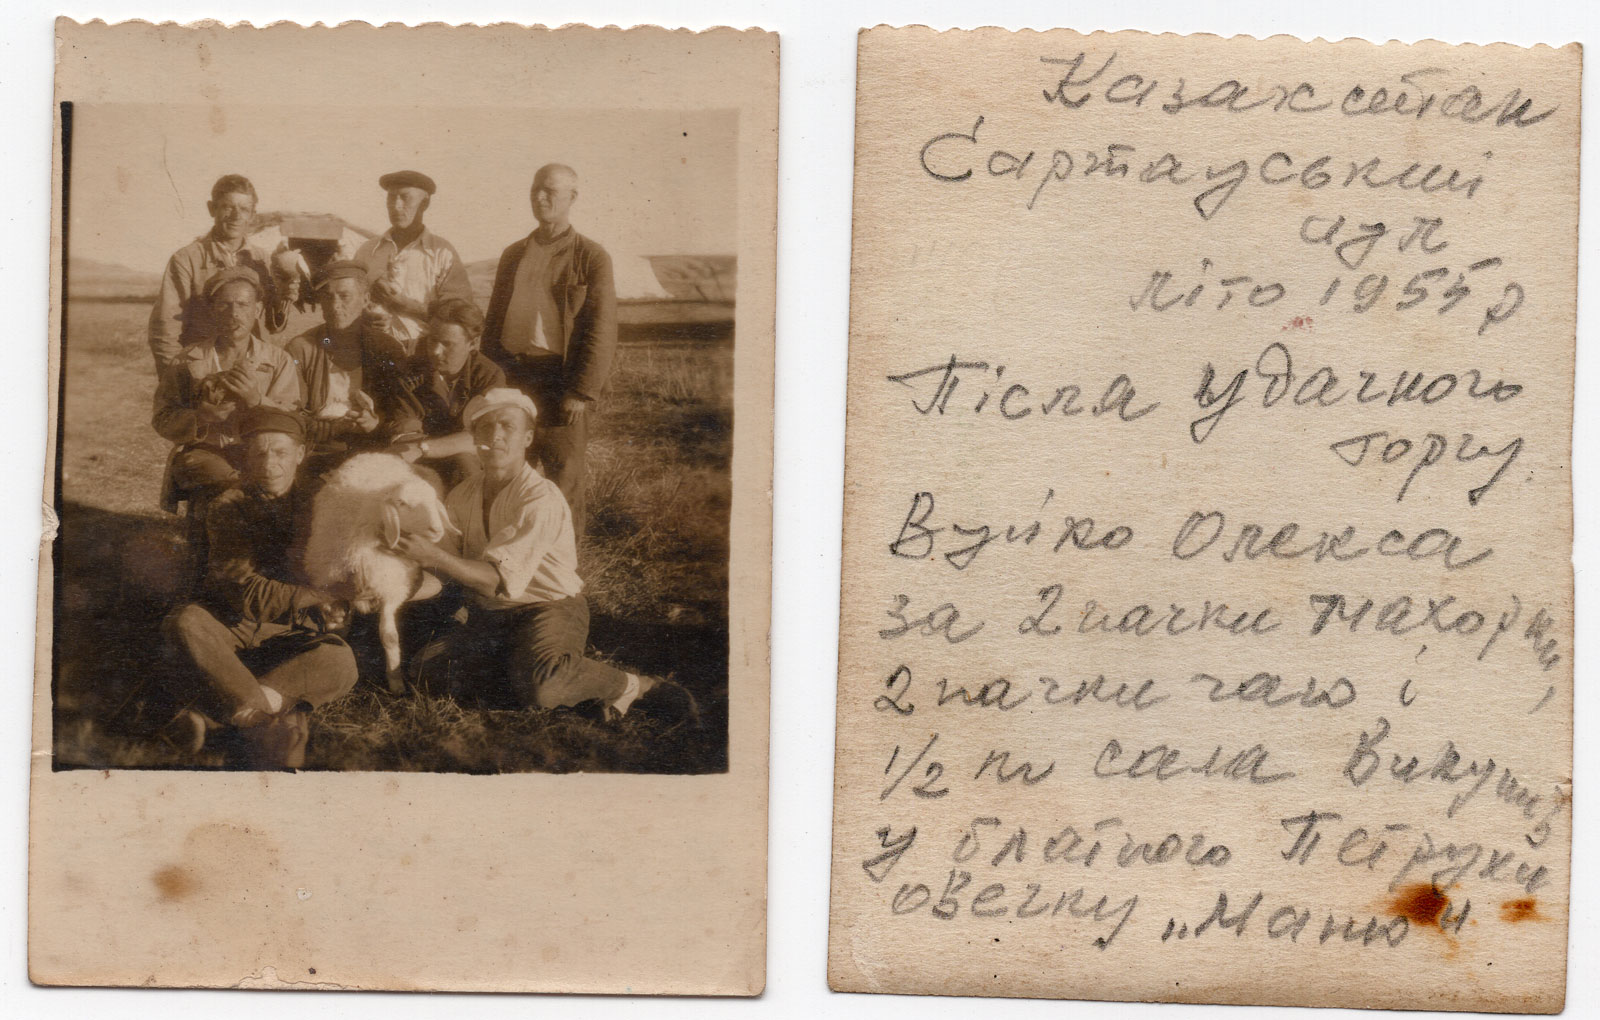 Казахстан
Сартауський
аул
літо 1955 р
Після удачного
торгу.
Вуйко Олекса
за 2 пачки махорки,
2 пачки чаю і
1/2 кг сала викупив
у блатного Петрухи
овечку „Маню"